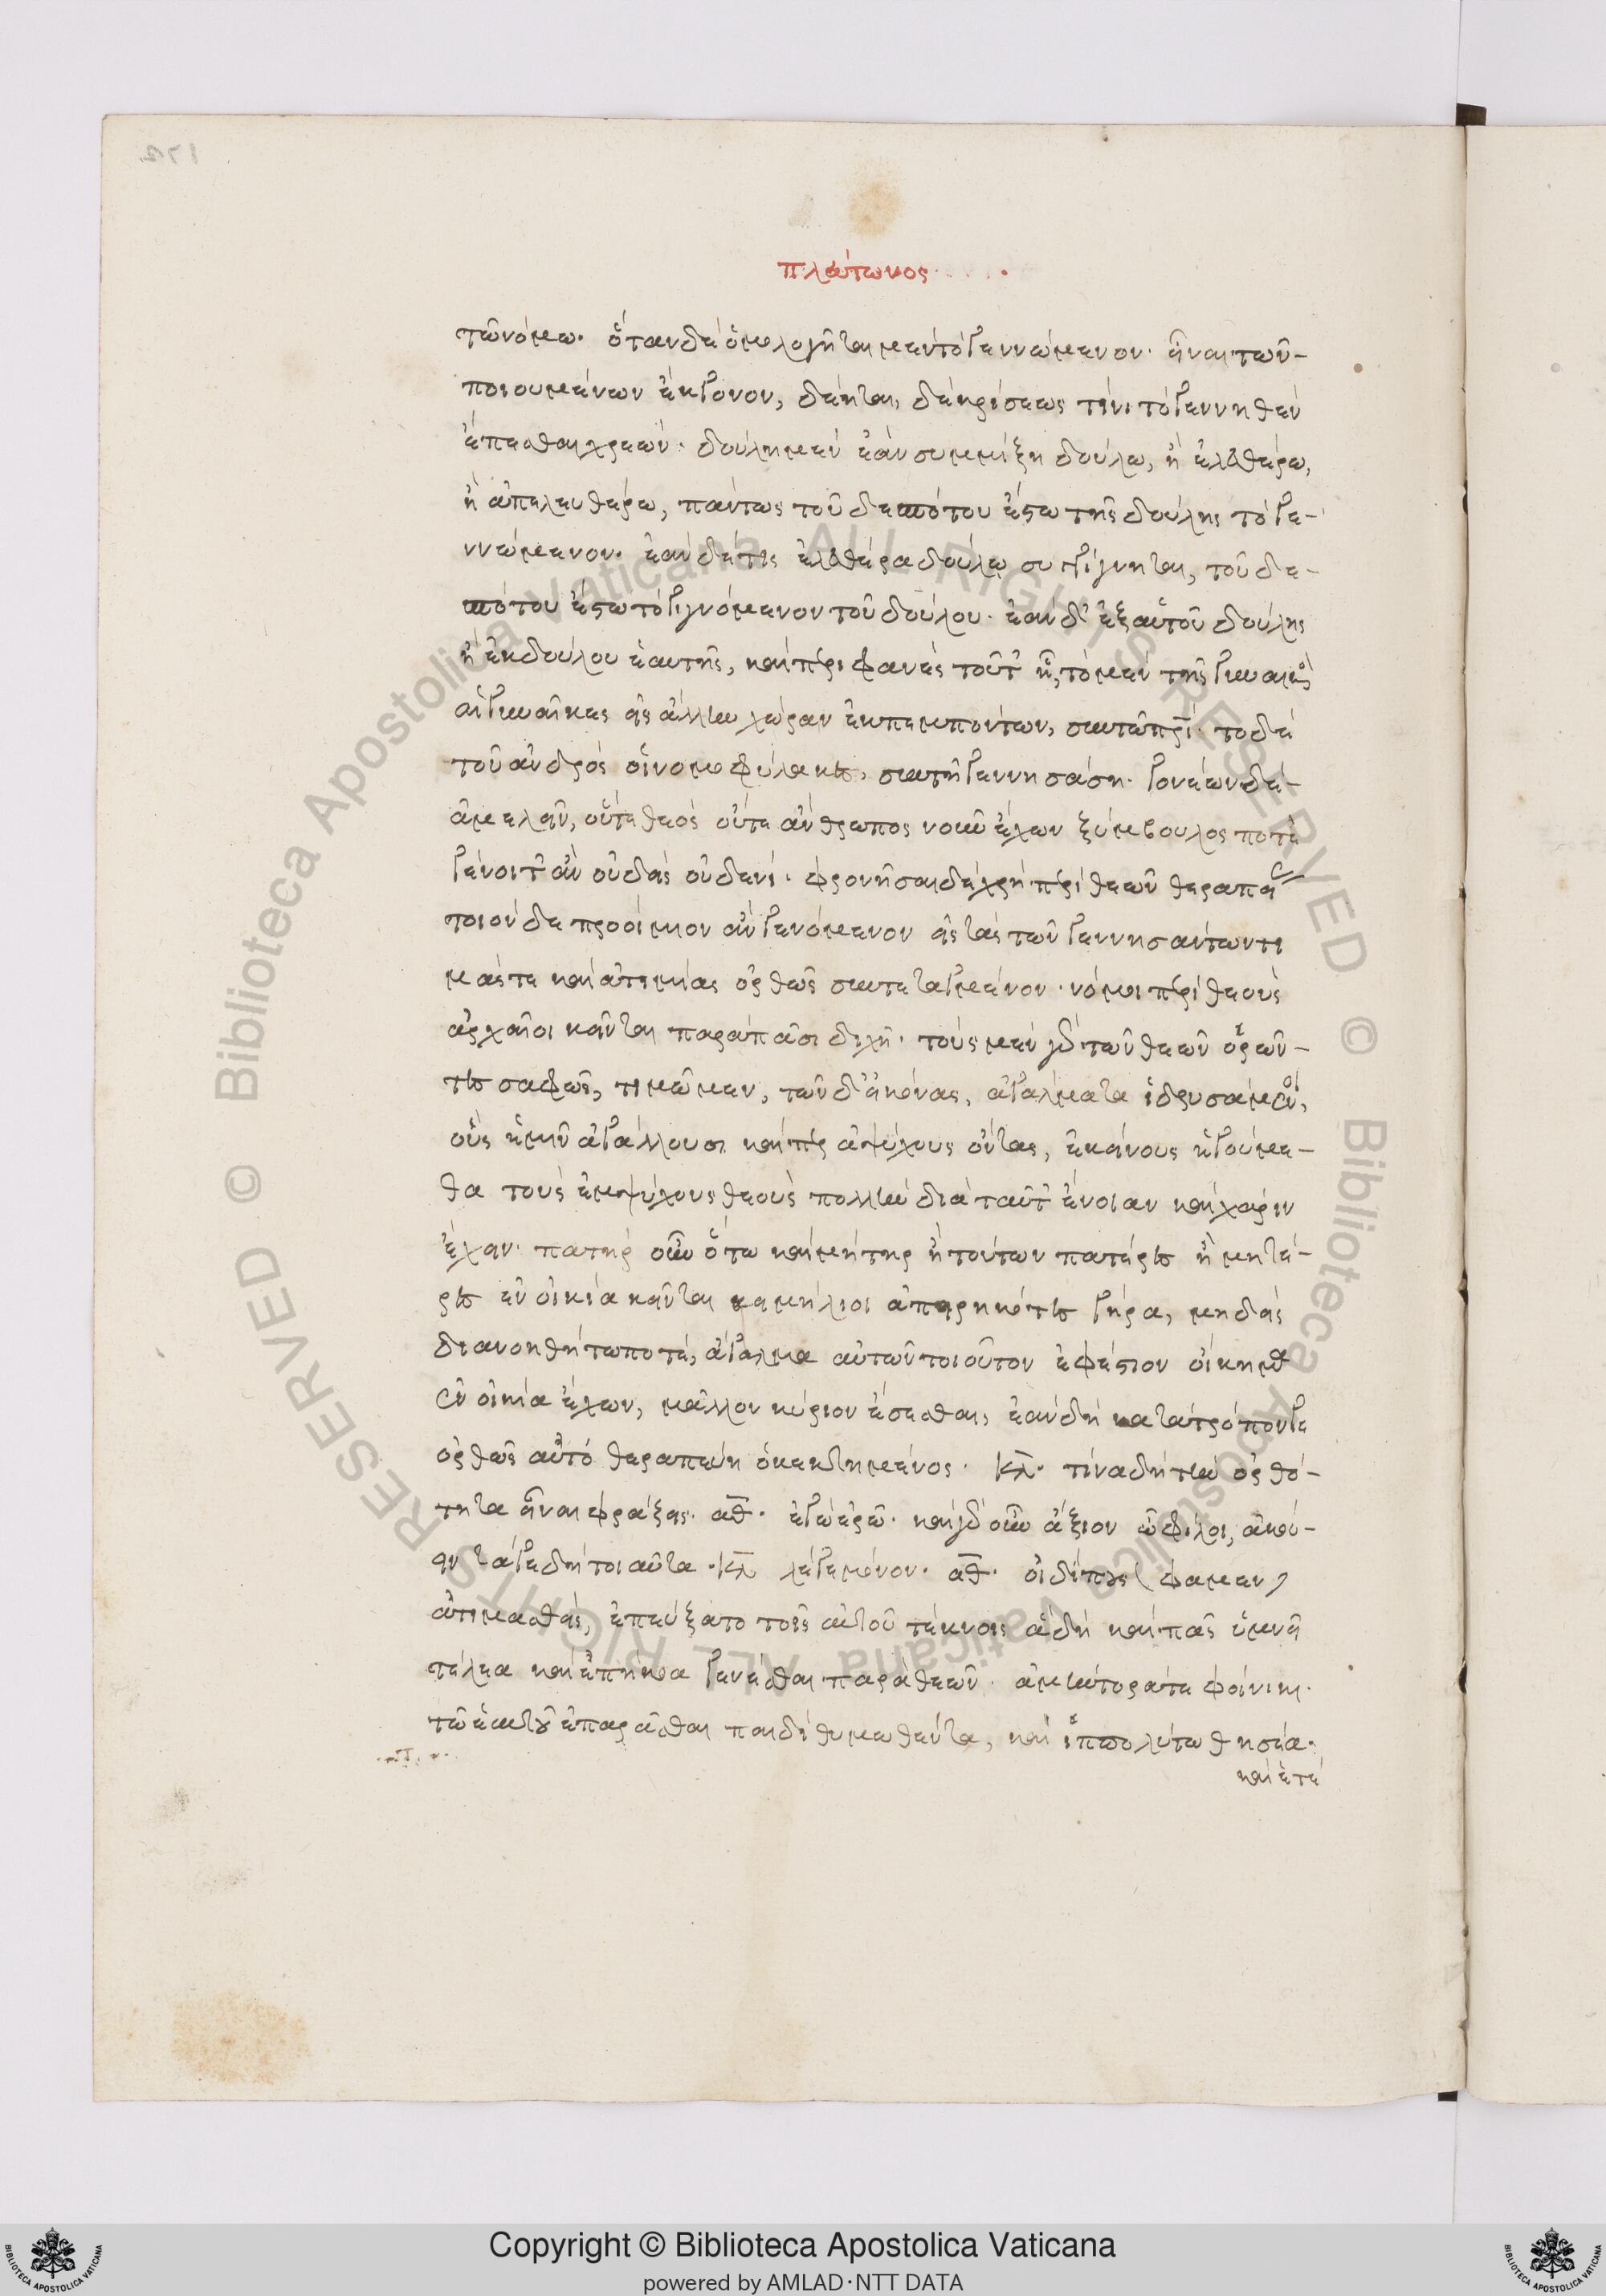 πλάτωνος
τῶ νόμω· ὅταν δὲ ὁμολογῆται μὲν τὸ γεννώμενον· εἶναι τῶν-
ποιουμένων ἔκγονον, δέηται, δὲ κρίσεως τίνι τὸ γεννηθὲν
ἕπεσθαι χρεών· δούλη μὲν ἐὰν συμμίξη δούλω, ἢ ἐλευθέρω,
ἢ ἀπελευθέρω, πάντως τοῦ δεσπότου ἔστω τῆς δούλης τὸ γε-
ννώμενον· ἐὰν δέ τις ἐλευθέρα δούλῳ συγγίγνηται, τοῦ δε-
σπότου ἔστω τὸ γιγνόμενον τοῦ δούλου· ἐὰν δ' ἐξ αὑτοῦ δούλης
ἢ ἐκ δούλου ἑαυτῆς, καὶ περιφανὲς τοῦτ' ᾖ, τὸ μὲν τῆς γυναικὸς
αἱ γυναῖκες εἰς ἄλλην χώραν ἐκπεμπόντων, σὺν τῶ πρί· τὸ δὲ
τοῦ ἀνδρὸς οἱ νομοφύλακες, σὺν τῆ γεννησάση· γονέων δὲ-
ἀμελεῖν, οὔτε θεὸς οὔτε ἄνθρωπος νοῦν ἔχων ξύμβουλος ποτὲ
γένοιτ' ἂν οὐδεὶς οὐδενί· φρονῆσαι δὲ χρὴ περὶ θεῶν θεραπείας
τοιόνδε προοίμιον ἂν γενόμενον εἰς τὰς τῶν γεννησάντων τι
μάς τε καὶ ἀτιμίας ὀρθῶς συντεταγμένον· νόμοι περὶ θεοὺς
ἀρχαῖοι κεῖνται παρὰ πᾶσι διχῆ· τοὺς μὲν γὰρ τῶν θεῶν ὁρῶν-
τες σαφῶς, τιμῶμεν, τῶν δ' εἰκόνας, ἀγάλματα ἱδρυσάμενοι,
οὓς ἡμῖν ἀγάλλουσι καὶ περ ἀψύχους ὄντας, ἐκείνους ἡγούμε-
θα τοὺς ἐμψύχους θεοὺς πολλὴν διὰ ταῦτ' εὔνοιαν καὶ χάριν
ἔχειν· πατὴρ οὖν ὅτω καὶ μήτηρ ἢ τούτων πατέρες ἢ μητέ-
ρες ἐν οἰκία κεῖνται κειμήλιοι ἀπειρηκότες γήρα, μηδεὶς
διανοηθήτω ποτέ, ἄγαλμα αὐτῶν τοιοῦτον ἐφέστιον οἴκημα
ἐν οἰκία ἔχων, μᾶλλον κύριον ἔσεσθαι, ἐὰν δὴ κατὰ τρόπον γε
ὀρθῶς αὐτὸ θεραπεύη ὁ κεκτημένος· κλ· τίνα δὴ τὴν ὀρθό-
τητα εἶναι φράξεις· αθ· ἐγὼ ἐρῶ· καὶ γὰρ οὖν ἄξιον ὦ φίλοι, ἀκού-
ειν τά γε δὴ τοιαῦτα· κλ λέγε μόνον· αθ· οἰδίπους (φαμεν)
ἀτιμασθεὶς, ἐπεύξατο τοῖς αὑτοῦ τέκνοις ἃ δὴ καὶ πᾶς ὑμνεῖ
τέλεα καὶ ἐπήκοα γενέσθαι παρὰ θεῶν· ἀμύντορά τε φοίνικι·
τῶ ἑαυτοῦ ἐπαρᾶσθαι παιδὶ θυμωθέντα, καὶ ἱππολύτω θησέα·
καὶ ἑτέ